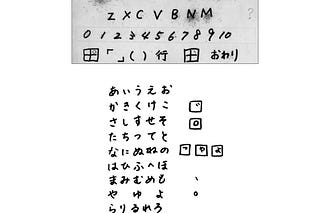 Z X C V B N M ?
0 1 2 3 4 5 6 7 8 9 10
田 「 」 ( ) 行 田 おわり
あ い う え お
か き く け こ
さ し す せ そ
た ち つ て と
な に ぬ ね の
は ひ ふ へ ほ
ま み む め も
や ゆ よ
ら り る れ ろ
じ
つ や よ
、
。